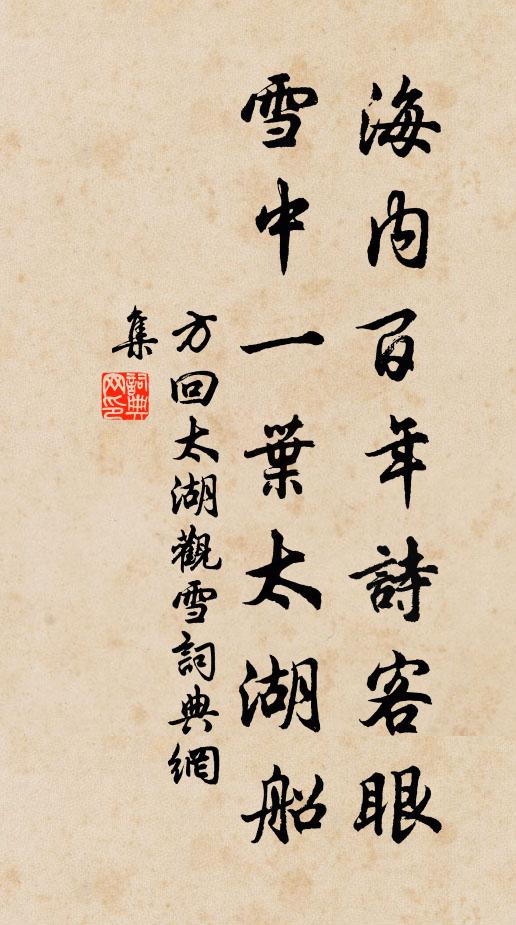 海内百年詩客眼
雪中一葉太湖船
方回太湖觀雪詞典網
集
詞典网印